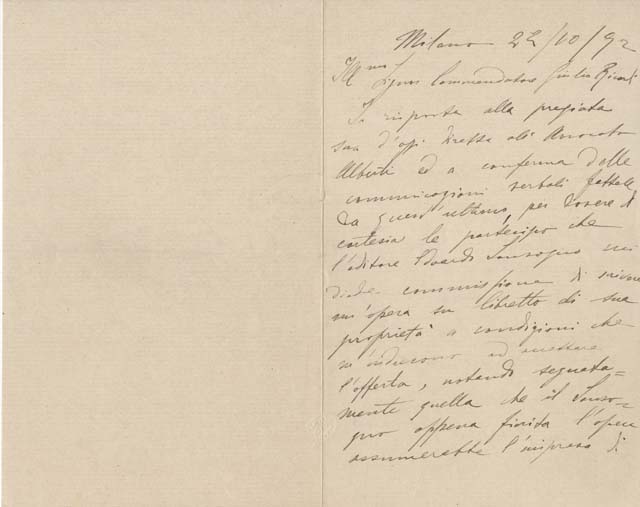 Milano 24/10/92
Ill.mo Signor Commendatore Giulio Ricordi
In risposta alla pregiata
sua d'oggi diretta all'Avvocato
Alberti ed a conferma delle
comunicazioni verbali fattele
da quest'ultimo, per dovere di
cortesia le partecipo che
l'editore Edoardo Sonzogno mi
diede commissione di scrivere
un'opera su libretto di sua
proprietà a condizioni che
m'inducono ad accettare
l'offerta, notando segnata=
mente quella che il Sonzo=
gno appena finita l'opera
assumerebbe l'impresa di